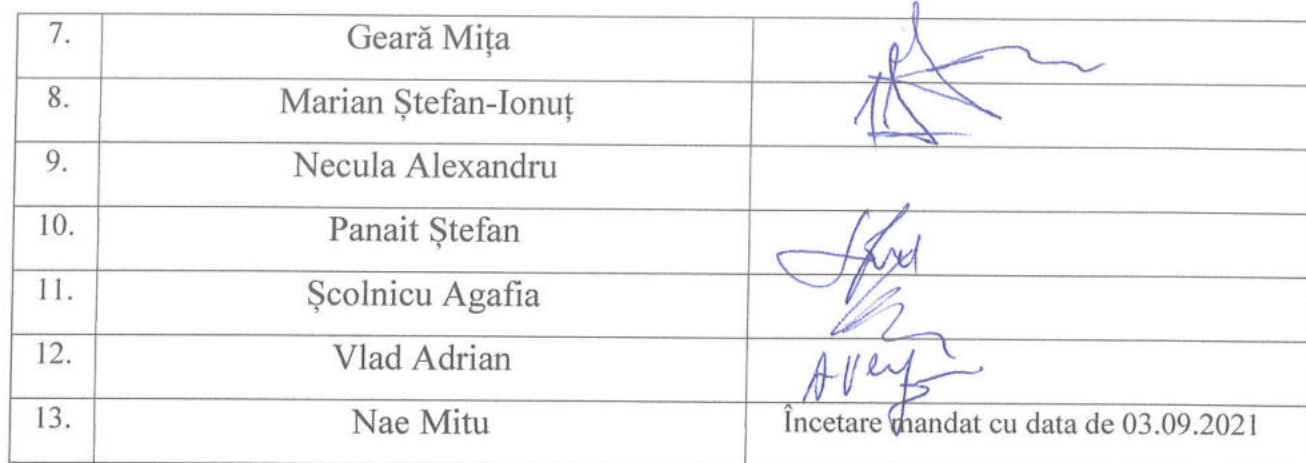 7. Geară Mița
8. Marian Ștefan-Ionuț
9. Necula Alexandru
10. Panait Ștefan
11. Școlnicu Agafia
12. Vlad Adrian
13. Nae Mitu Încetare mandat cu data de 03.09.2021